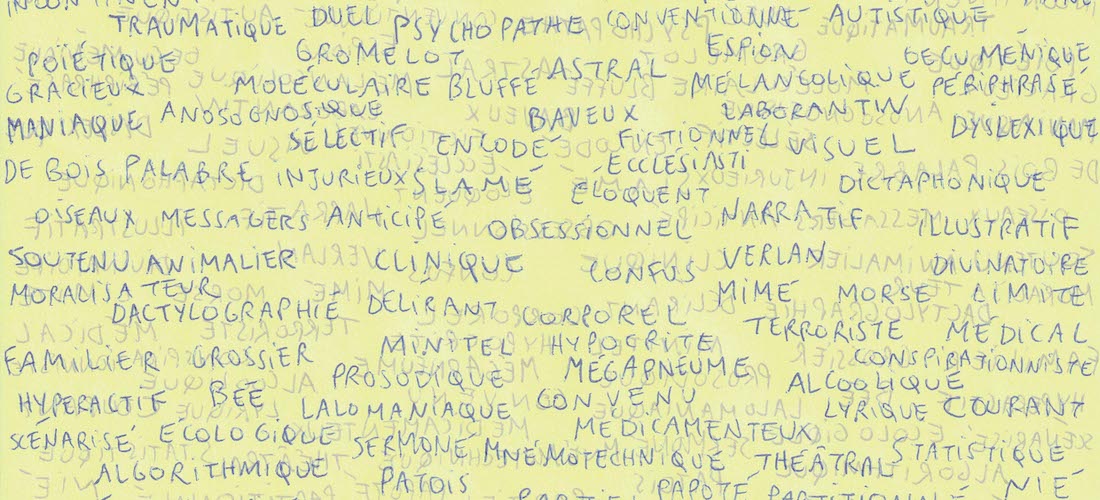 TRAUMATIQUE DUEL PSYCHOPATHE CONVENTIONNÉ AUTISTIQUE
POÏÉTIQUE GROMELOT ASTRAL ESPION OECUMÉNIQUE
GRACIEUX MOLÉCULAIRE BLUFFÉ MÉLANCOLIQUE PÉRIPHRASÉ
MANIAQUE ANOSOGNOSIQUE BAVEUX LABORANTIN DYSLEXIQUE
SÉLECTIF ENCODÉ FICTIONNEL VISUEL
DE BOIS PALABRE INJURIEUX SLAMÉ ECCLÉSIASTI ÉLOQUENT DICTAPHONIQUE
OISEAUX MESSAGERS ANTICIPÉ OBSESSIONNEL NARRATIF ILLUSTRATIF
SOUTENU ANIMALIER CLINIQUE CONFUS VERLAN DIVINATOIRE
MORALISATEUR MIMÉ MORSE LIMITE
DACTYLOGRAPHIÉ DÉLIRANT CORPOREL TERRORISTE MÉDICAL
FAMILIER GROSSIER MINITEL HYPOCRITE CONSPIRATIONNISTE
PROSODIQUE MÉGAPNEUME ALCOOLIQUE
HYPERACTIF BÉÉ LALOMANIAQUE CONVENU LYRIQUE COURANT
SCÉNARISÉ ÉCOLOGIQUE SERMONÉ MNÉMOTECHNIQUE MÉDICAMENTEUX STATISTIQUE
ALGORITHMIQUE PATOIS THÉATRAL NIÉ
PAPOTÉ